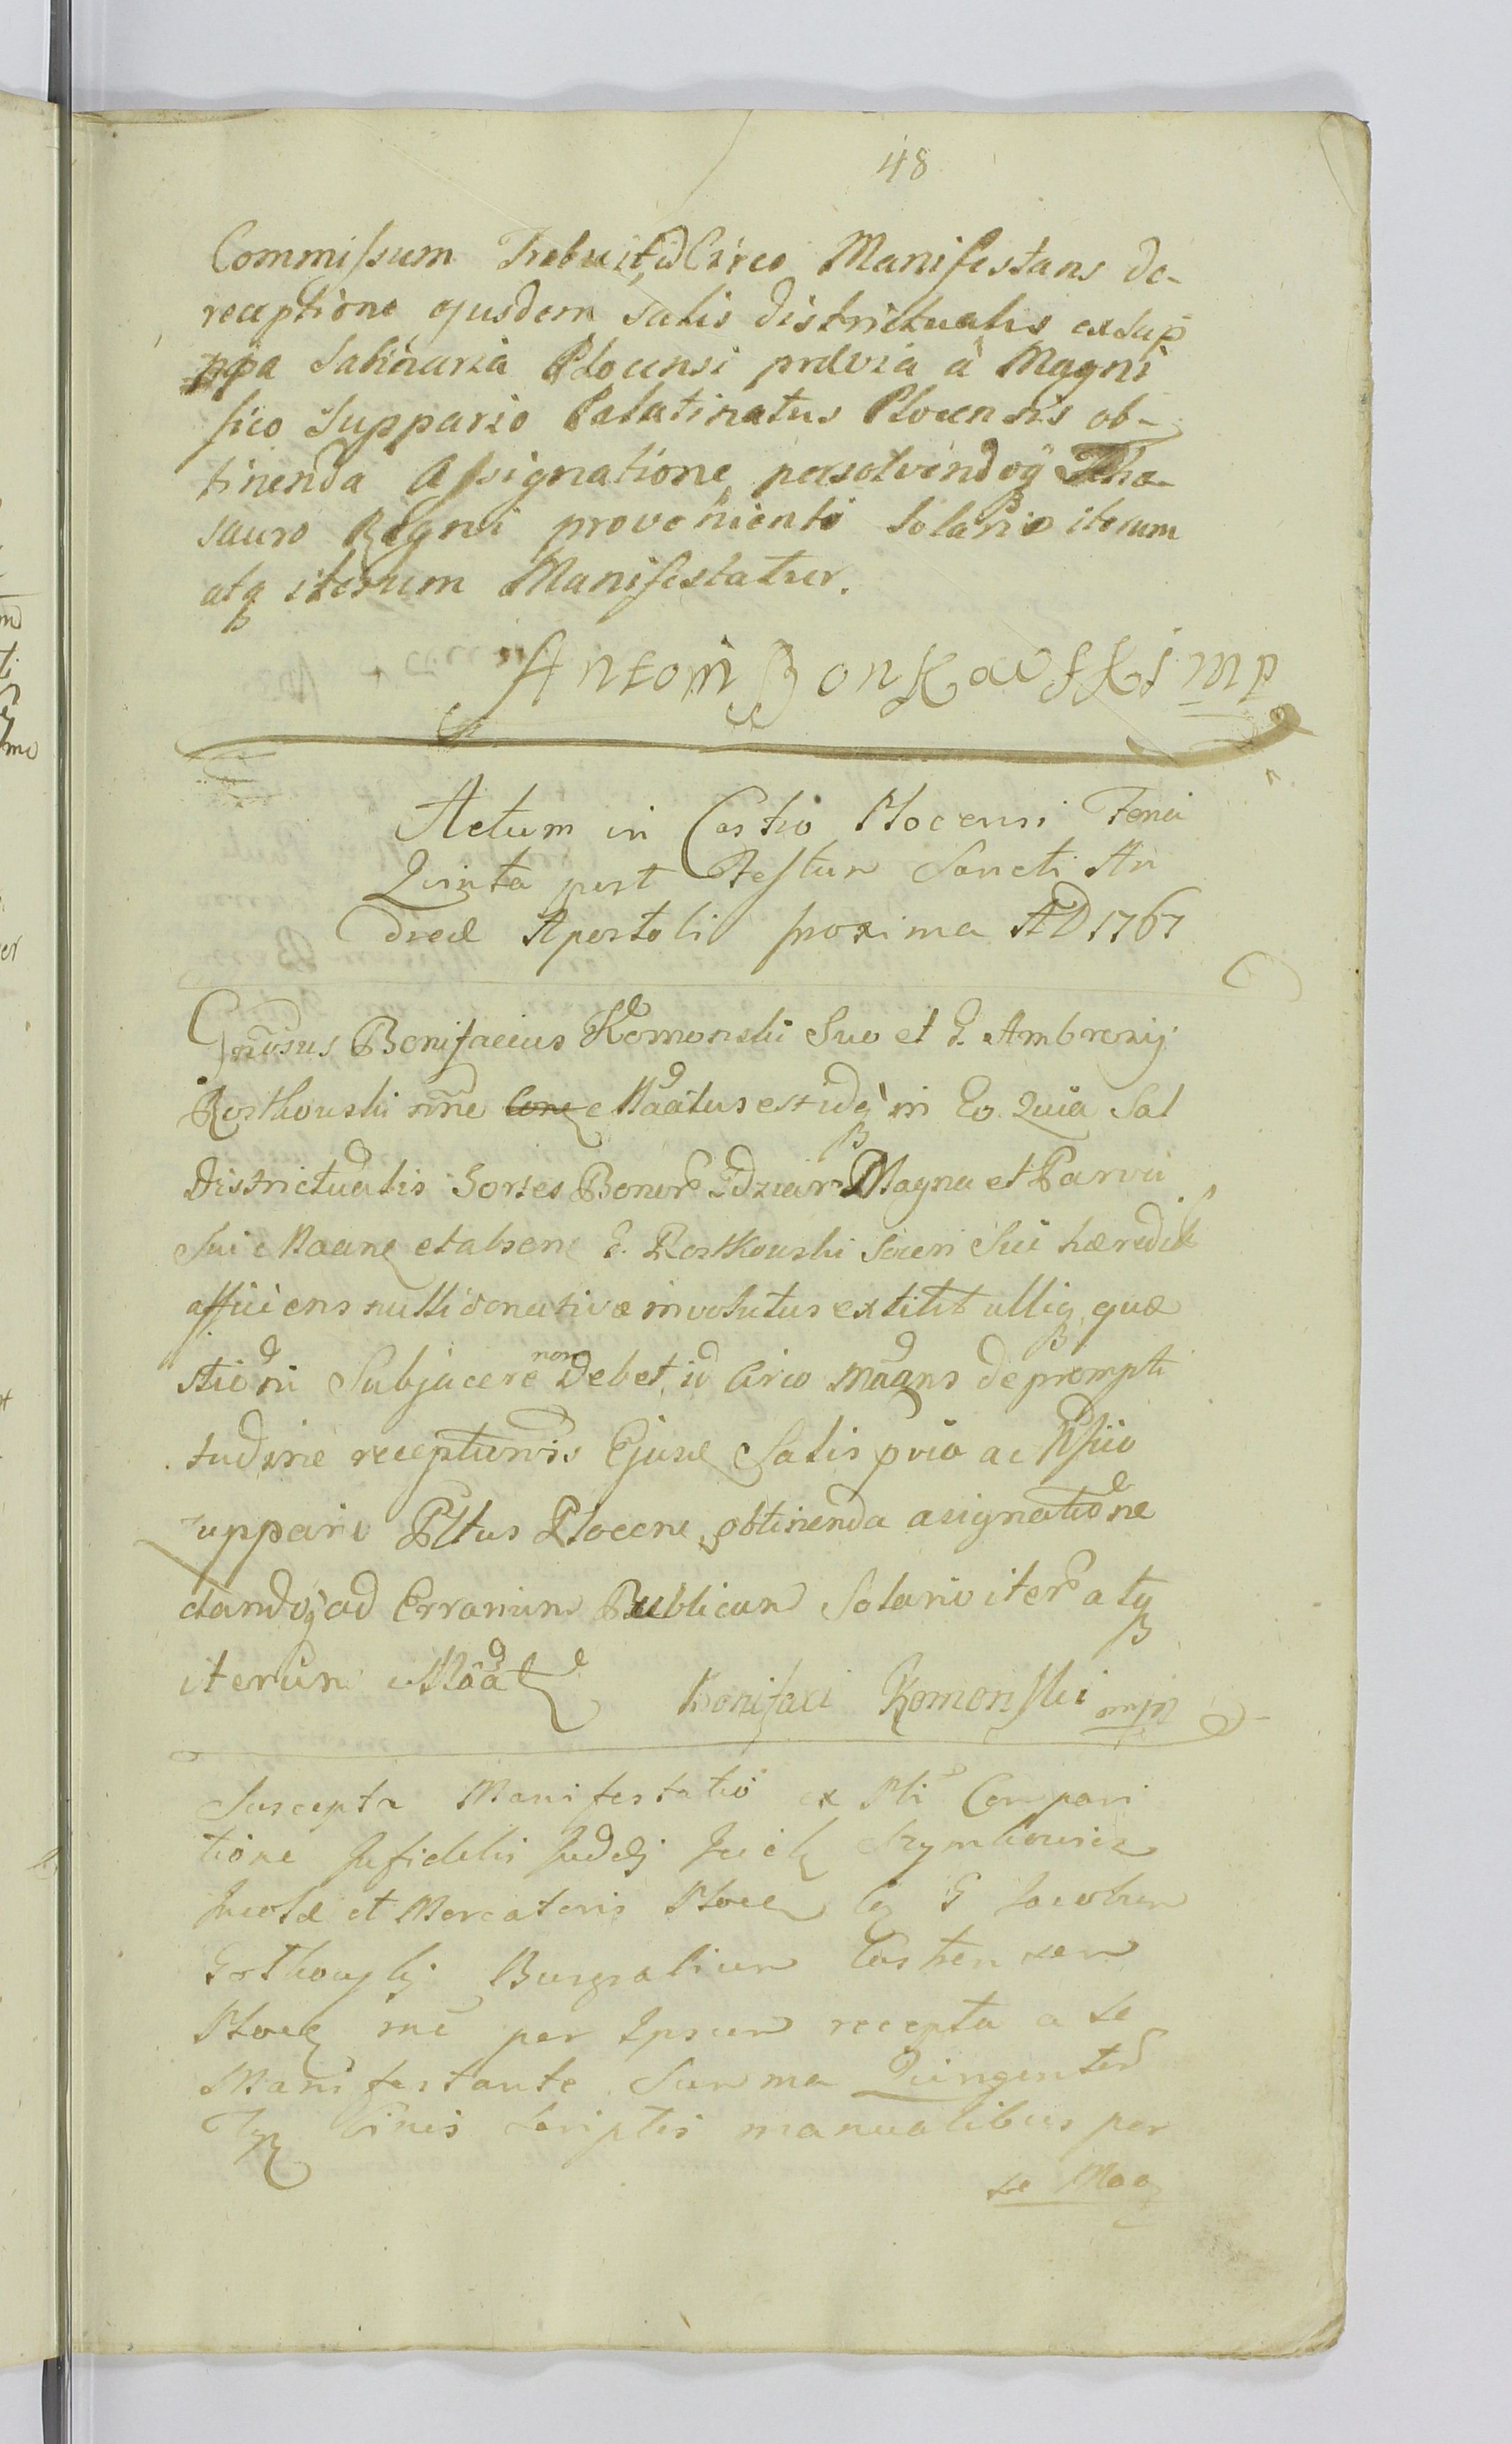 48
Commissum Trebuit id Circo Manifestans de-
receptione ejusdem salis districtualis ex sup
ppa Salinaria Plocensi prævia a Magni
fico Suppario Palatinatus Plocensis ob-
tinenda Assignatione persolvendoq Thæ-
sauro Regni proveniente solario iterum
atq iterum Manifestatur.
Antoni Bonkowski mp
Actum in Castro Plocensi Feria
Quinta post Festum Sancti An
dreæ Apostoli proxima AD 1767
Gnosus Bonifacius Komonski Suo et G. Ambrozij
Rostkowski nne Mãatus est idq in Eo. Quia Sal
Districtualis Sortes Bonor Magna et Parva
Sui Maane et absen G. Rostkowski Soceri Sui hæredit
afficiens nulli donativæ involutus extitit ulliq quæ
stioni Subjacere non debet, id Circo Maans de prompti
tudine receptionis Ejusd Salis pvia a Mfico
uppario Pltus Plocen obtinenda asignatione
dandoq ad Errarium Publicum Solario iter atq
iterum Maat Bonifaci Komonski mp
Suscepta Manifestatio ex Pti Compari
tione Infidelis Judej Szymkowicz
Incolæ et Mercatoris Ploce G Jacobum
Burgrabium Castren sem
Ploce per Ipsum recepta a se
Manifestante Summa Quingentor
Finis scriptis manualibus per
se Maa